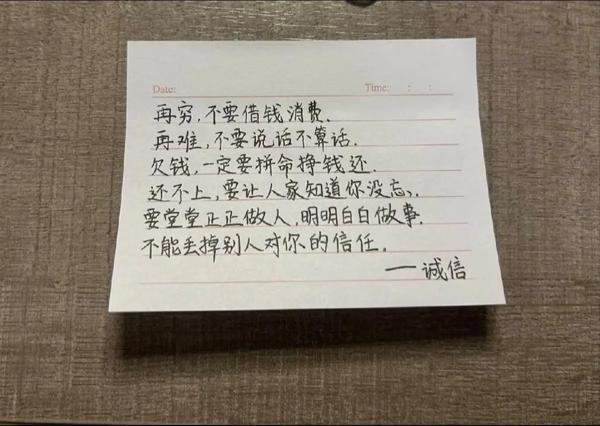 Date:
Time: : :
再穷,不要借钱消费.
再难,不要说话不算话.
欠钱,一定要拼命挣钱还.
还不上,要让人家知道你没忘、.
要堂堂正正做人,明明白白做事.
不能丢掉别人对你的信任.
——诚信